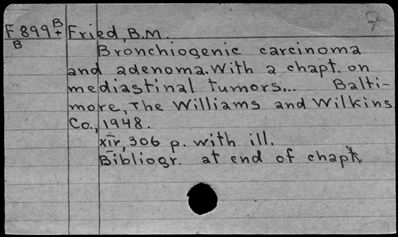 F 899 B+ Fried, B.M.
B
Bronchiogenic carcinoma
and adenoma. With a chapt. on
mediastinal tumors... Balti-
more, The Williams and Wilkins
Co., 1948.
xiv, 306 p. with ill.
Bibliogr. at end of chapt.